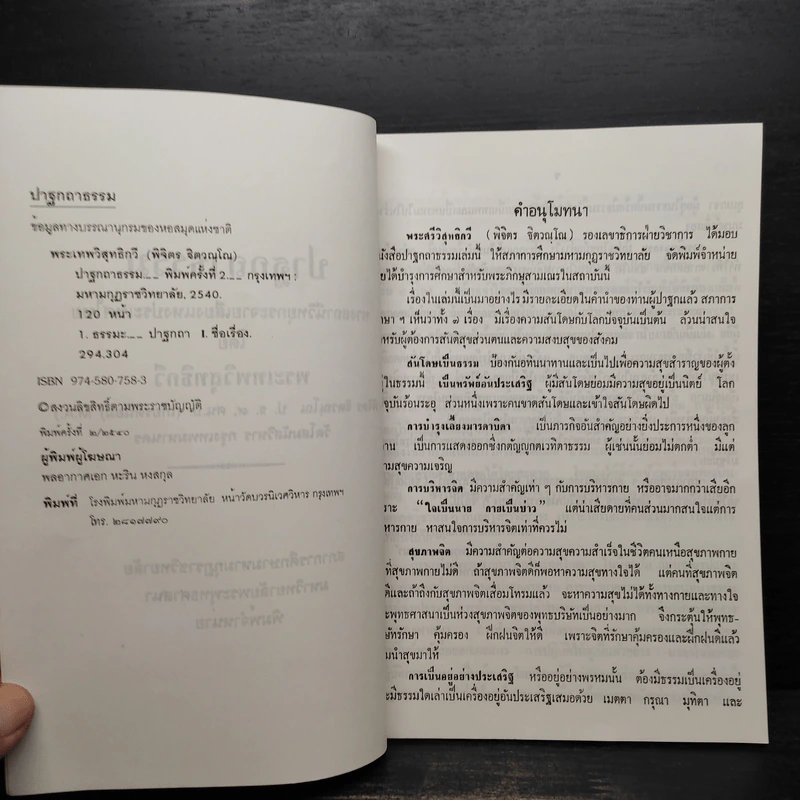 ปาฐกถาธรรม
ข้อมูลทางบรรณานุกรมของหอสมุดแห่งชาติ
พระเทพวิสุทธิกวี (พิจิตร ฐิตวณฺโณ)
ปาฐกถาธรรม.__ พิมพ์ครั้งที่ 2.__ กรุงเทพฯ :
มหามกุฏราชวิทยาลัย, 2540.
120 หน้า
1. ธรรมะ.__ ปาฐกถา I. ชื่อเรื่อง.
294.304
ISBN 974-580-758-3
©สงวนลิขสิทธิ์ตามพระราชบัญญัติ
พิมพ์ครั้งที่ ๒/๒๕๔๐
ผู้พิมพ์ผู้โฆษณา
พลอากาศเอก หะริน หงสกุล
พิมพ์ที่ โรงพิมพ์มหามกุฏราชวิทยาลัย หน้าวัดบวรนิเวศวิหาร กรุงเทพฯ
โทร. ๒๘๑๗๗๙๐
คำอนุโมทนา
พระศรีวิสุทธิกวี (พิจิตร ฐิตวณฺโณ) รองเลขาธิการฝ่ายวิชาการ ได้มอบ
นังสือปาฐกถาธรรมเล่มนี้ ให้สภาการศึกษามหามกุฏราชวิทยาลัย จัดพิมพ์จำหน่าย
ยได้บำรุงการศึกษาสำหรับพระภิกษุสามเณรในสถาบันนี้
เรื่องในเล่มนี้เป็นมาอย่างไร มีรายละเอียดในคำนำของท่านผู้ปาฐกแล้ว สภาการ
กษา ฯ เห็นว่าทั้ง ๑ เรื่อง มีเรื่องความสันโดษกับโลกปัจจุบันเป็นต้น ล้วนน่าสนใจ
หรับผู้ต้องการสันติสุขส่วนตนและความสงบสุขของสังคม
สันโดษเป็นธรรม ป้องกันอทินนาทานและเป็นไปเพื่อความสุขสำราญของผู้ตั้ง
ยู่ในธรรมนี้ เป็นทรัพย์อันประเสริฐ ผู้มีสันโดษย่อมมีความสุขอยู่เป็นนิตย์ โลก
จจุบันร้อนระอุ ส่วนหนึ่งเพราะคนขาดสันโดษและเข้าใจสันโดษผิดไป
การบำรุงเลี้ยงมารดาบิดา เป็นภารกิจอันสำคัญอย่างยิ่งประการหนึ่งของลูก
าน เป็นการแสดงออกซึ่งกตัญญูกตเวทิตาธรรม ผู้เช่นนั้นย่อมไม่ตกต่ำ มีแต่
ามสุขความเจริญ
การบริหารจิต มีความสำคัญเท่า ๆ กับการบริหารกาย หรืออาจมากกว่าเสียอีก
ราะ “ใจเป็นนาย กายเป็นบ่าว” แต่น่าเสียดายที่คนส่วนมากสนใจแต่การ
หารกาย หาสนใจการบริหารจิตเท่าที่ควรไม่
สุขภาพจิต มีความสำคัญต่อความสุขความสำเร็จในชีวิตคนเหนือสุขภาพกาย
ที่สุขภาพกายไม่ดี ถ้าสุขภาพจิตดีก็พอหาความสุขทางใจได้ แต่คนที่สุขภาพจิต
ดีและถ้าถึงกับสุขภาพจิตเสื่อมโทรมแล้ว จะหาความสุขไม่ได้ทั้งทางกายและทางใจ
ะพุทธศาสนาเป็นห่วงสุขภาพจิตของพุทธบริษัทเป็นอย่างมาก จึงกระตุ้นให้พุทธ-
ษัทรักษา คุ้มครอง ฝึกฝนจิตให้ดี เพราะจิตที่รักษาคุ้มครองและฝึกฝนดีแล้ว
มนำสุขมาให้
การเป็นอยู่อย่างประเสริฐ หรืออยู่อย่างพรหมนั้น ต้องมีธรรมเป็นเครื่องอยู่
ะมีธรรมใดเล่าเป็นเครื่องอยู่อันประเสริฐเสมอด้วย เมตตา กรุณา มุทิตา และ